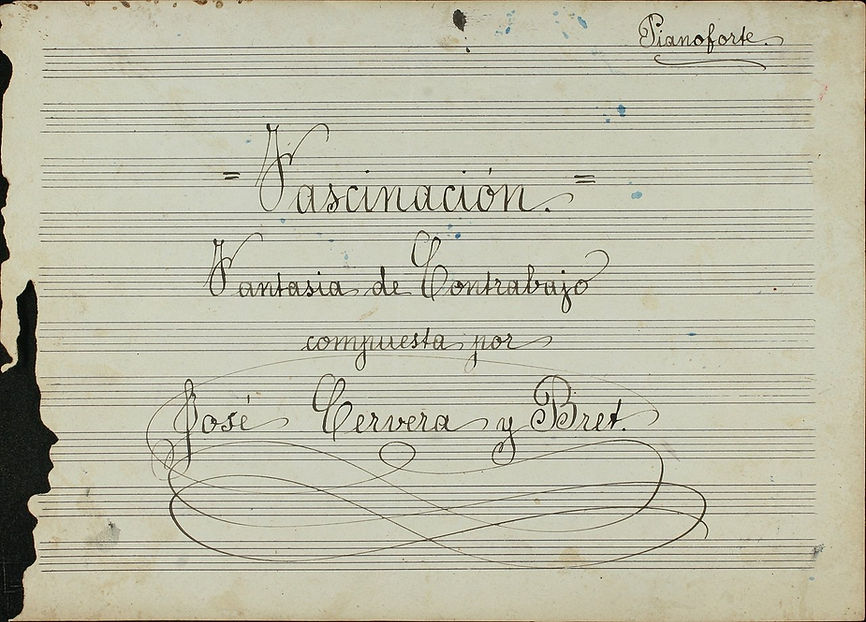 Pianoforte.
= Fascinación. =
Fantasia de Contrabajo
compuesta por
José Cervera y Bret.